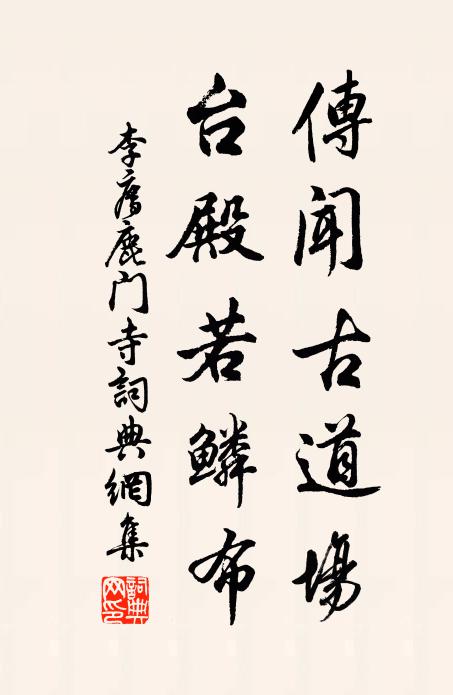 傳聞古道場
台殿若鱗布
李廌鹿门寺詞典網集
詞典网印